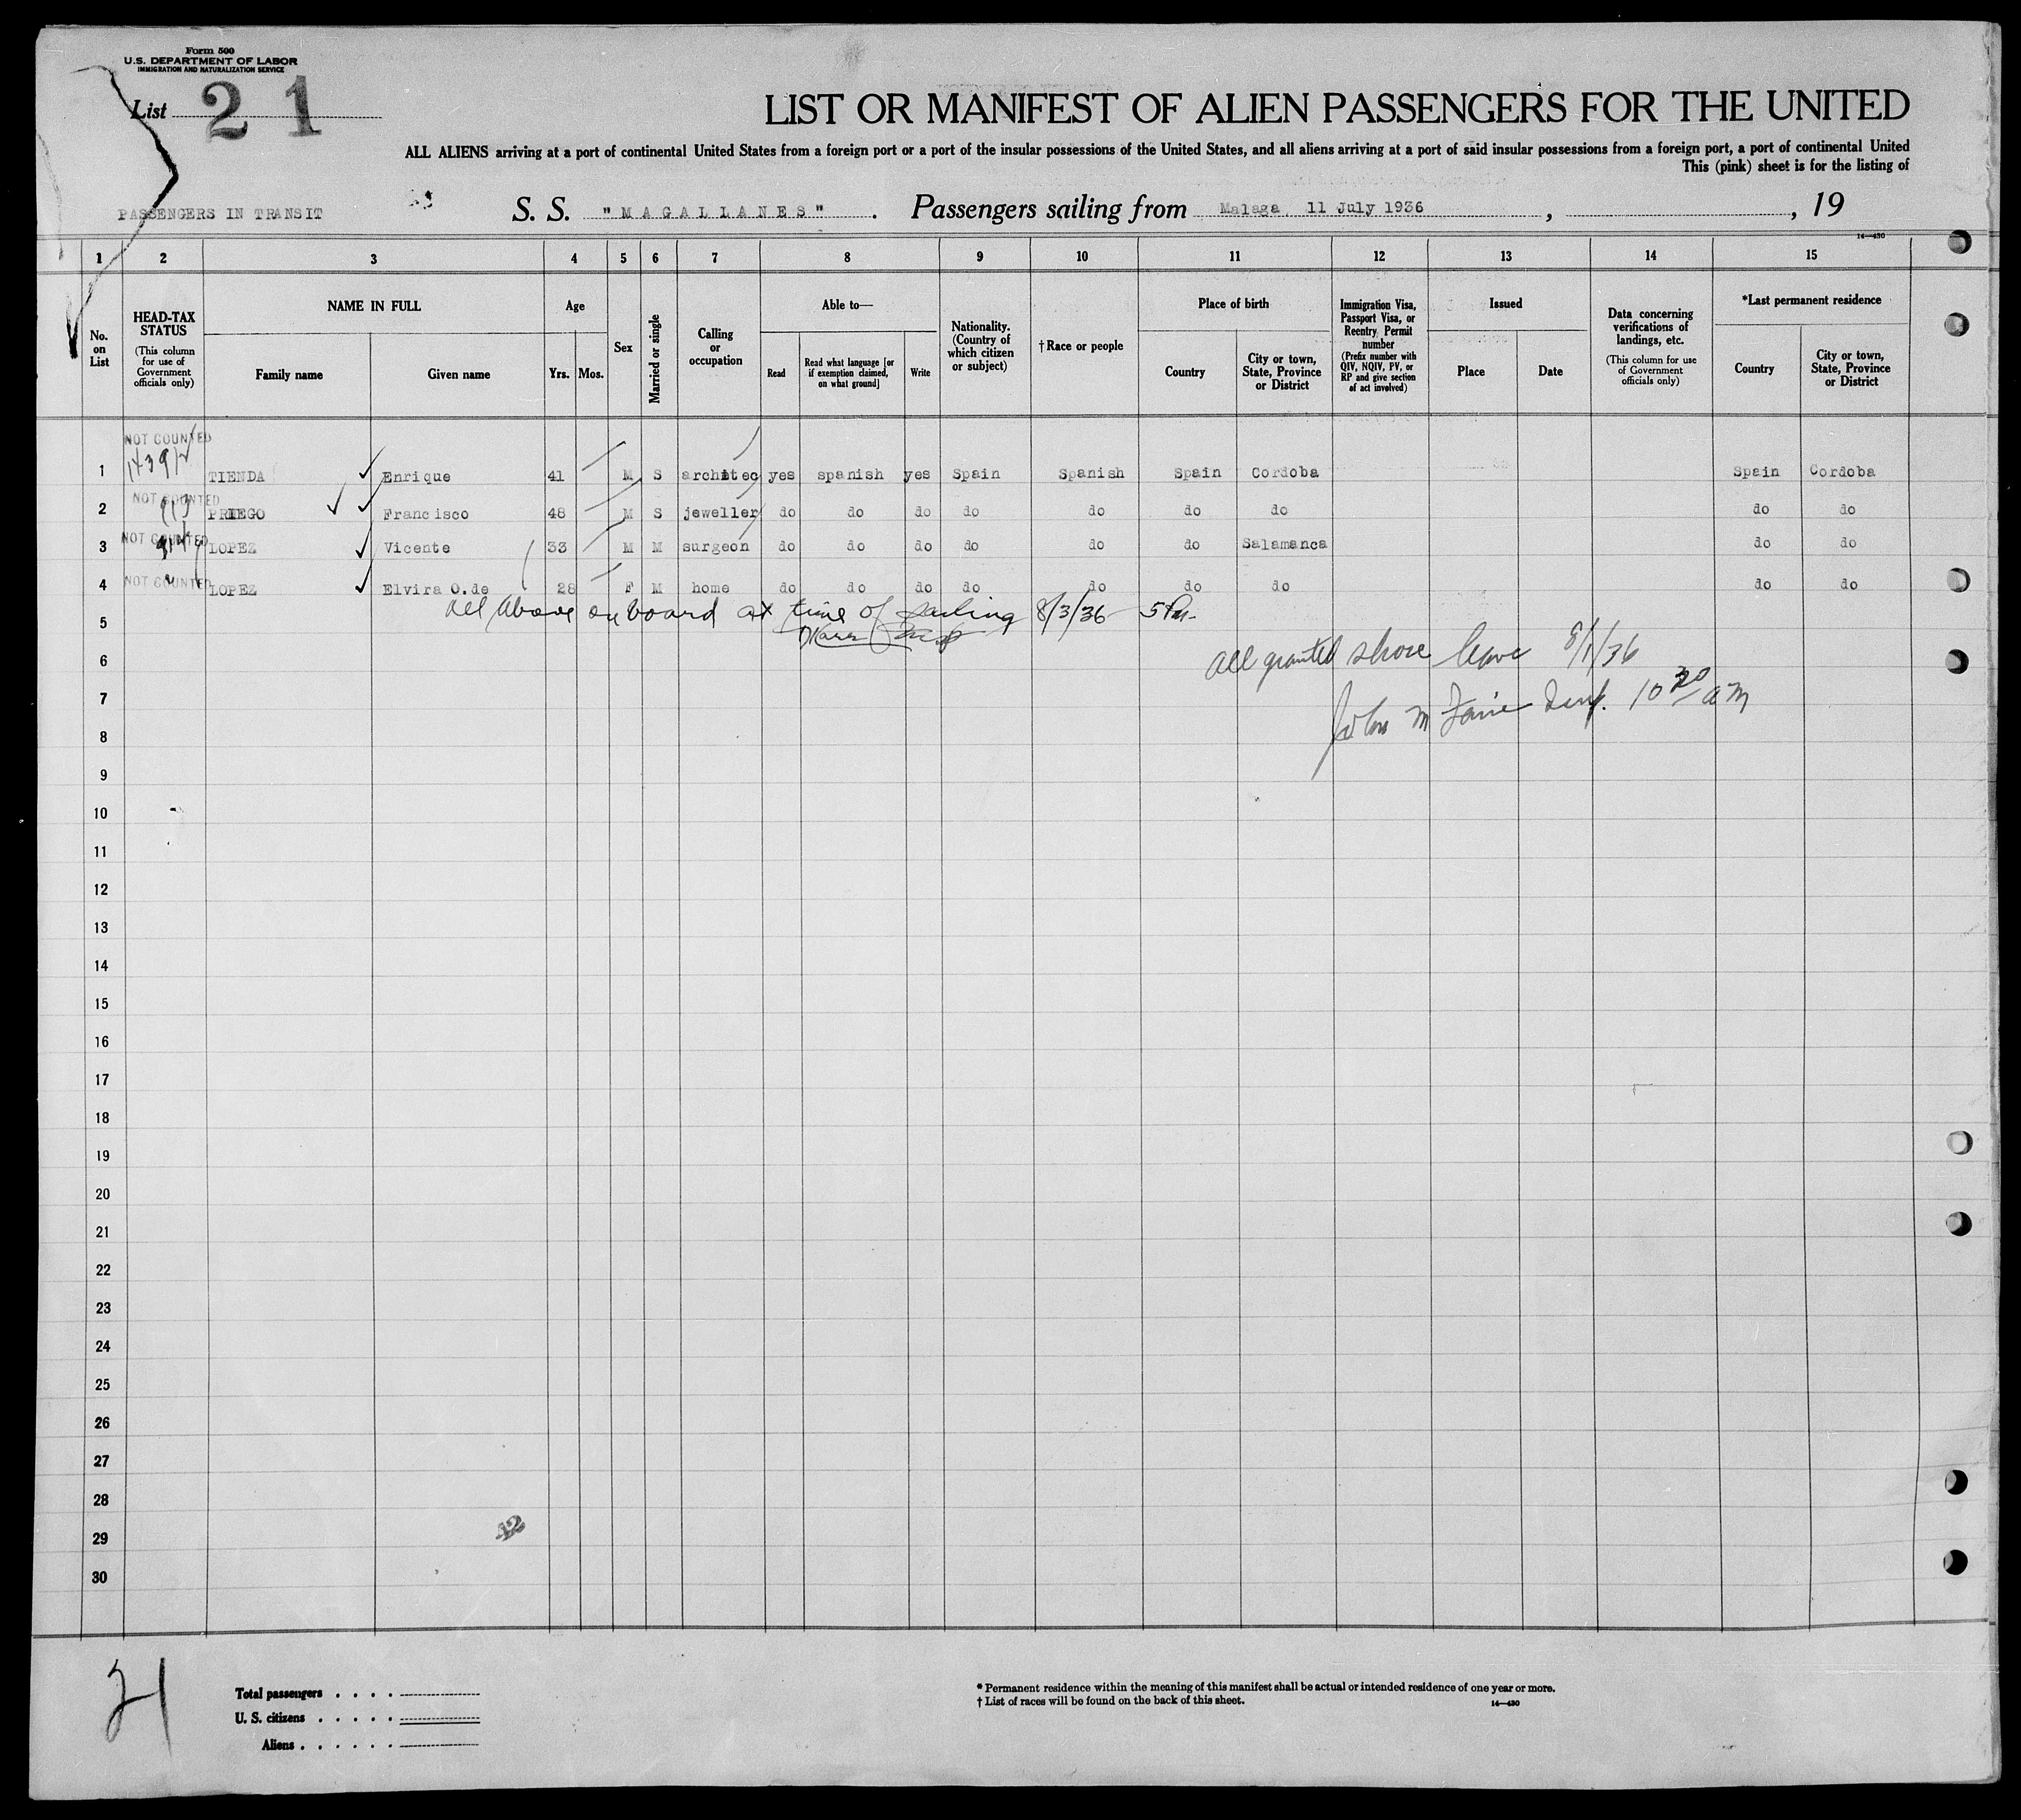 Form 500
U.S. DEPARTMENT OF LABOR
IMMIGRATION AND NATURALIZATION SERVICE
List 21
LIST OR MANIFEST OF ALIEN PASSENGERS FOR THE UNITED
ALL ALIENS arriving at a port of continental United States from a foreign port or a port of the insular possessions of the United States, and all aliens arriving at a port of said insular possessions from a foreign port, a port of continental United
This (pink) sheet is for the listing of
PASSENGERS IN TRANSIT S. S. "MAGALLANES". Passengers sailing from Malaga 11 July 1936, , 19
14—430
1 2 3 4 5 6 7 8 9 10 11 12 13 14 15
No. on List
HEAD-TAX STATUS (This column for use of Government officials only)
NAME IN FULL
Family name
Given name
Age
Yrs. Mos.
Sex
Married or single
Calling or occupation
Able to—
Read
Read what language [or if exemption claimed, on what ground]
Write
Nationality. (Country of which citizen or subject)
† Race or people
Place of birth
Country
City or town, State, Province or District
Immigration Visa, Passport Visa, or Reentry Permit number (Prefix number with QIV, NQIV, PV, or RP and give section of act involved)
Issued
Place
Date
Data concerning verifications of landings, etc. (This column for use of Government officials only)
*Last permanent residence
Country
City or town, State, Province or District
NOT COUNTED
1 TIENDA Enrique 41 M S architec yes spanish yes Spain Spanish Spain Cordoba Spain Cordoba
NOT COUNTED
2 913 PRIEGO Francisco 48 M S jeweller do do do do do do do do do
NOT COUNTED
3 914 LOPEZ Vicente 33 M M surgeon do do do do do do Salamanca do do
NOT COUNTED
4 LOPEZ Elvira O.de 28 F M home do do do do do do do do do
All above on board at time of sailing 8/3/36 5 PM.
5
All granted shore leave 8/1/36
6
7
John M Insp. 10 20 AM
8
9
10
11
12
13
14
15
16
17
18
19
20
21
22
23
24
25
26
27
28
29
42
30
21
Total passengers . . . .
U. S. citizens . . . . .
Aliens . . . . . .
* Permanent residence within the meaning of this manifest shall be actual or intended residence of one year or more.
† List of races will be found on the back of this sheet.
14—430